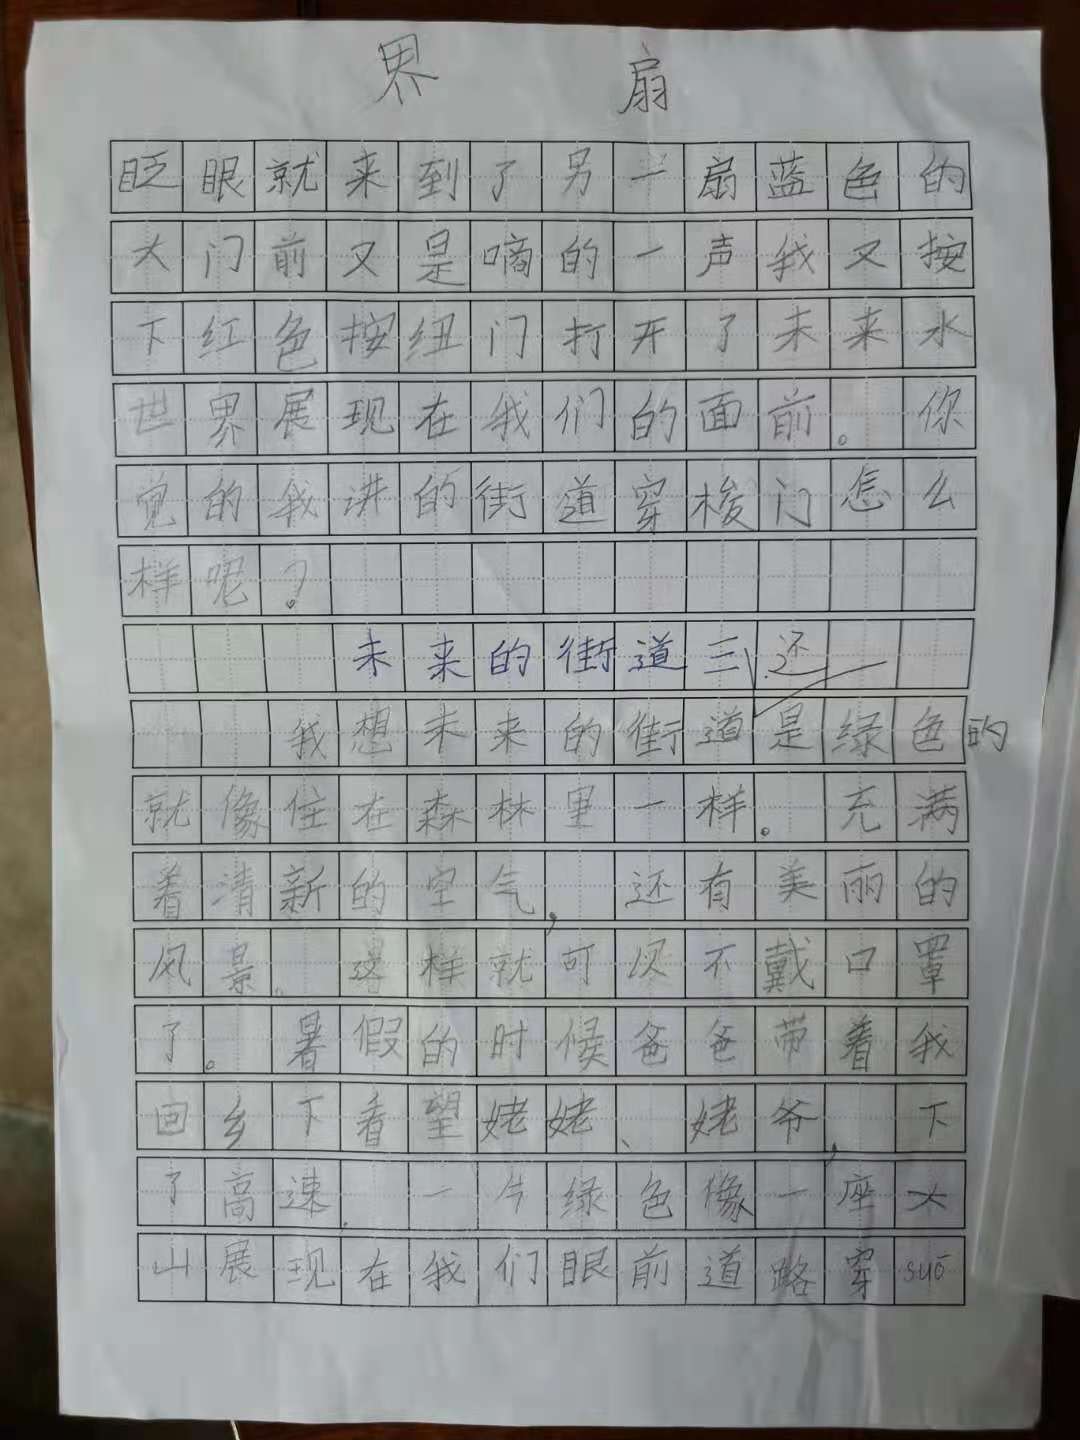 界 扇
眨眼就来到了另一扇蓝色的
大门前又是嘀的一声我又按
下红色按纽门打开了未来水
世界展现在我们的面前。你
觉的我讲的街道穿梭门怎么
样呢？
未来的街道三还
我想未来的街道是绿色的
就像住在森林里一样。充满
着清新的空气，还有美丽的
风景。这样就可以不戴口罩
了。暑假的时候爸爸带着我
回乡下看望姥姥、姥爷，下
了高速.一片绿色像一座大
山展现在我们眼前道路穿suō